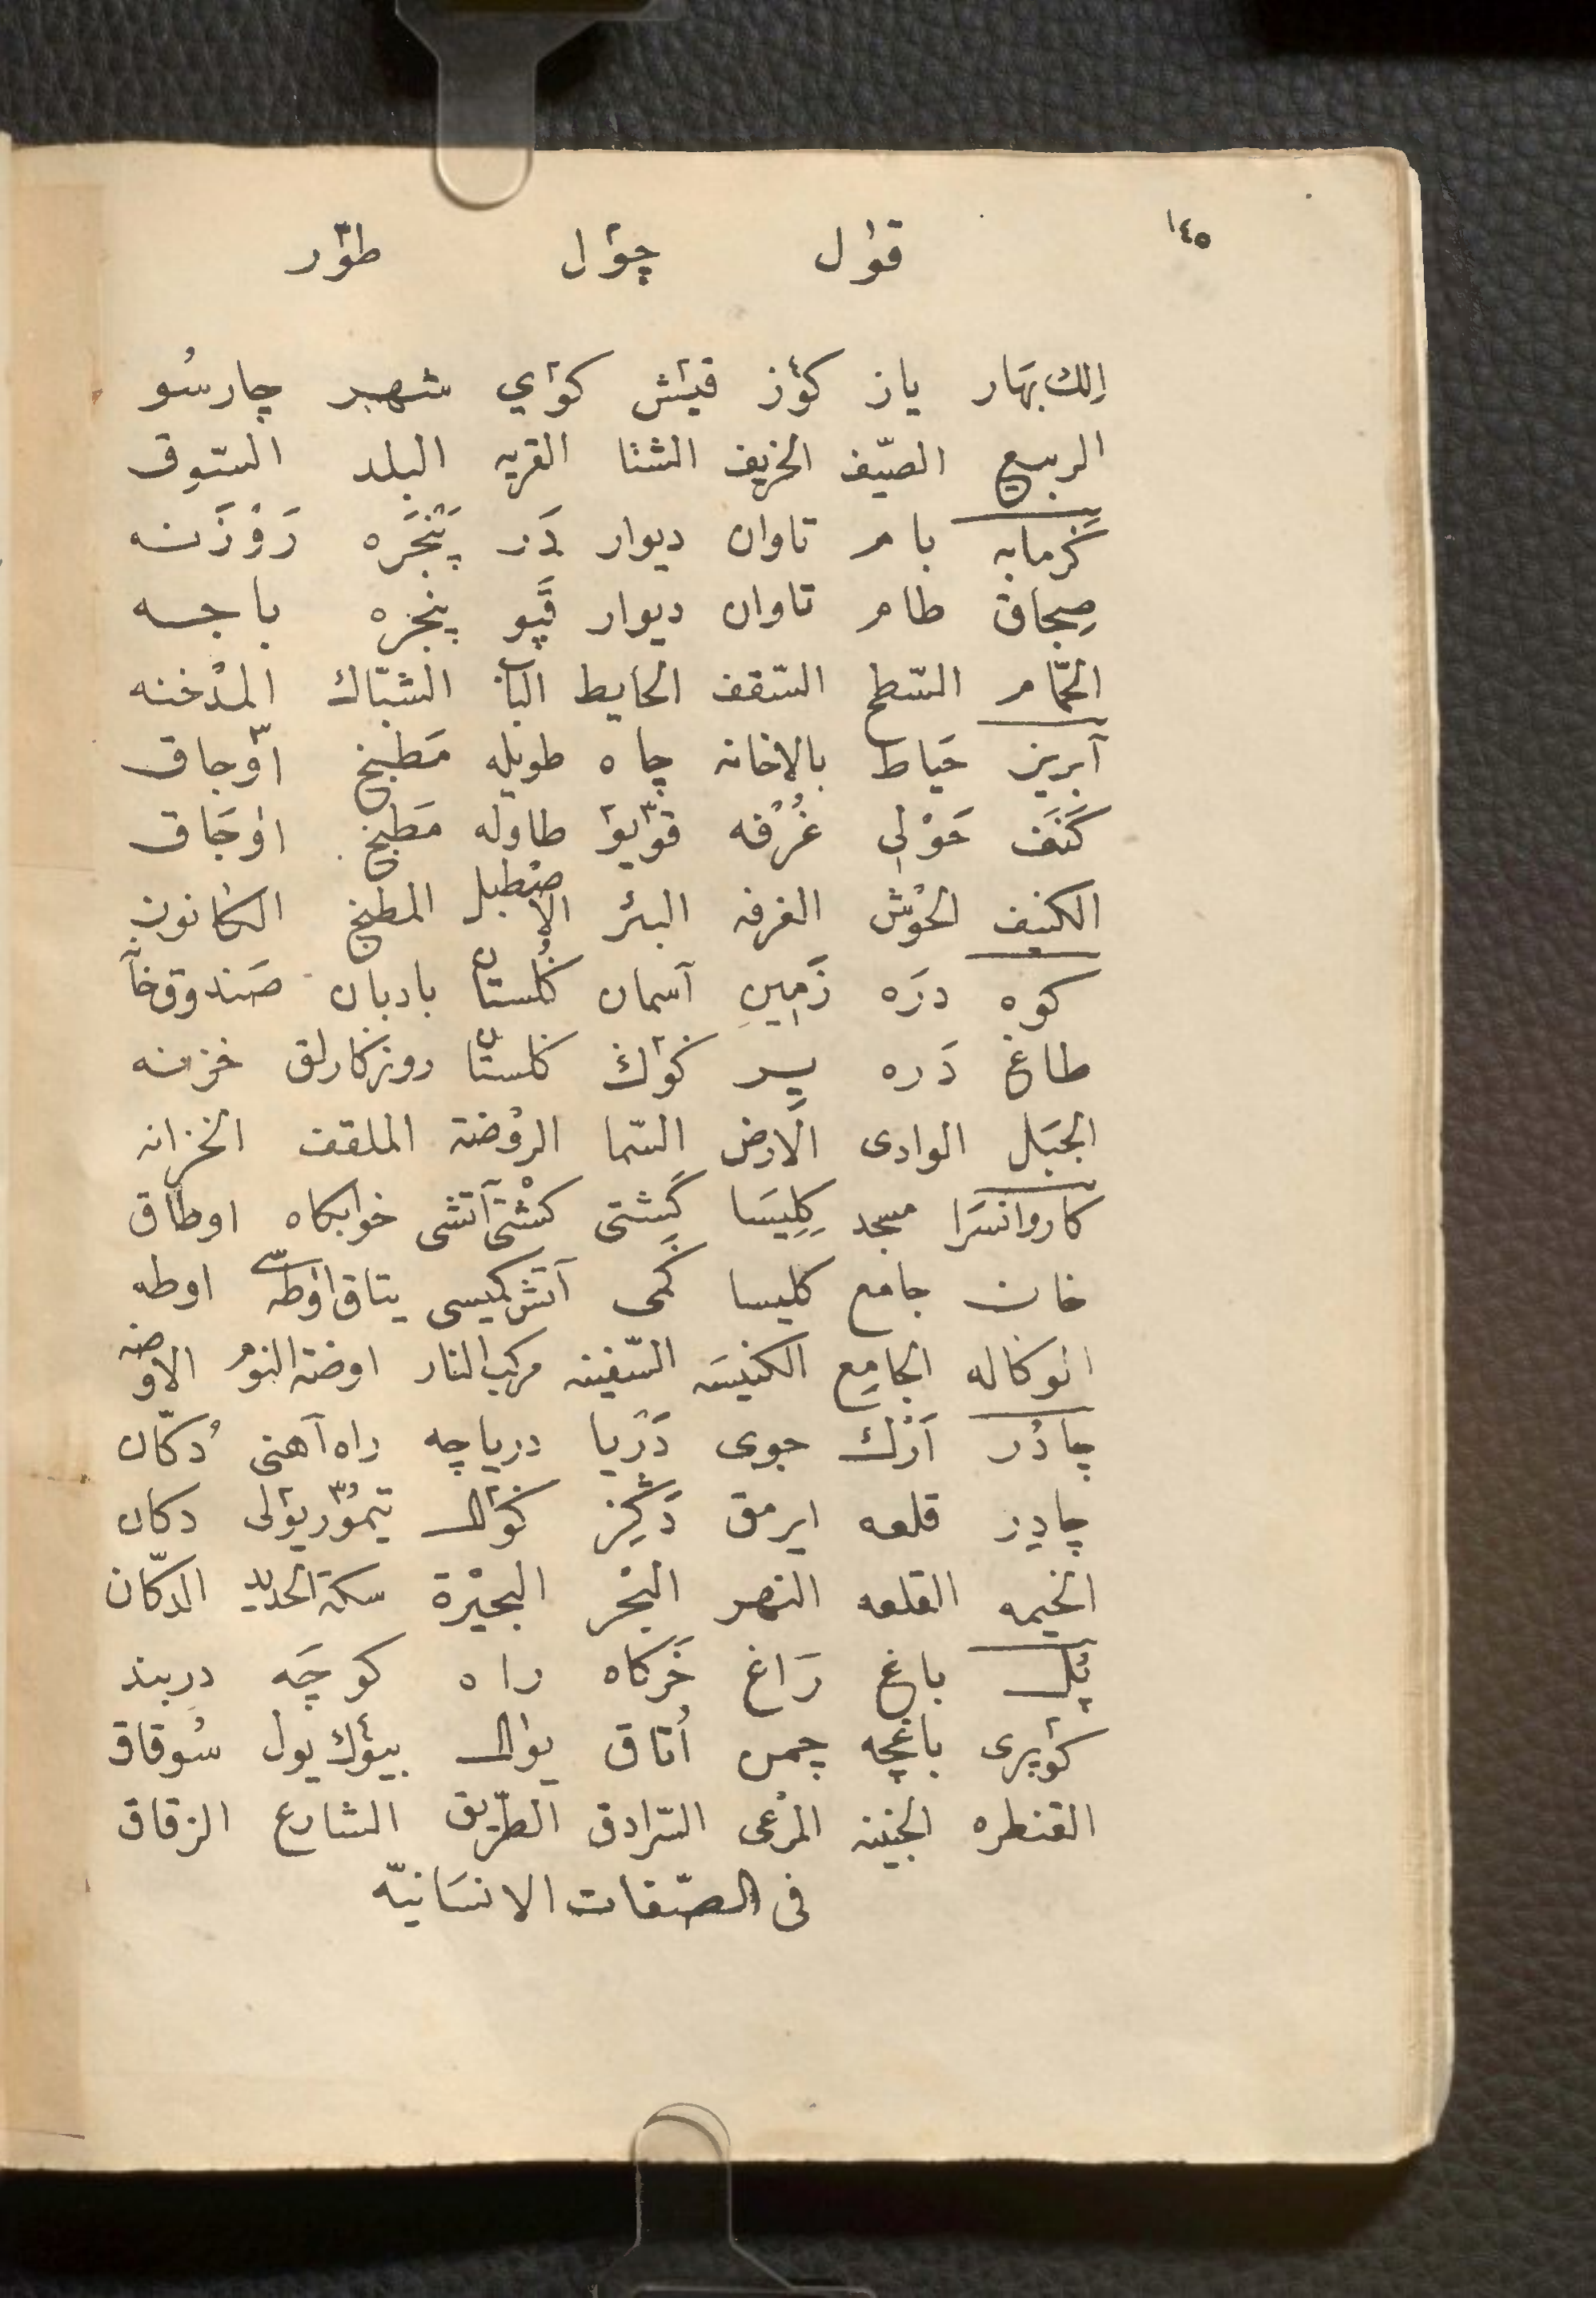 ١٤٥
قول چول طور
اِلك بهَار ياز كوز قيش كوي شهر چارسُو
الربيع الصيّف الخريف الشتا القريه البلد السّوق
گَرمابه بام تاوان ديوار دَر پَنْجَره رَوْزَنه
صِجاق طام تاوان ديوار قَپو پنجره باجه
الحّمام السّطح السّقف الحايط الباب الشبّاك المدْخنه
آبريز حَياط بالاخانه چاه طويله مَطبخ اوّجاق
كَنَف حَوْلى غُرْفه قويو طاوله مَطبخ اوجَاق
الكنيف الحْوش الغرفه البئر الاصْطبل المطبخ الكانون
كوه درَه زَمِينِ آسمان گُلستان بادبان صَندوق‌خآ
طاغ دَره يير كوك گلستان روزكارلق خزنه
الجبَل الوادى الَارض السّما الروْضة الملقف الخزانه
كاروانسَرا مسجد كِلِيسَا گَِشتى كشْتى آتشى خوابكاه اوطاق
خان جامع كليسا گَمى آتش كميسى يتاق اوطه سى اوطه
انوكاله الجامِع الكنيسَه السّفينه مركب النار اوضة النوم الاوضه
چادُر اَرْك جوى دَرْيا درياچه راه آهنى دُكّان
چادِر قلعه ايرمق دَكِز كول تيمُوّر يولى دكان
الخيمه القلعه النهر البْحر البحيْرة سكة الحديد الدكّان
پُل باغ رَاغ خَركاه راه كوچَه دربند
كوپرى باغچه چمن اُتاق يول بيوك يول سُوقاق
القنطره الجنينه المرْعى السّرادق الطّريق الشارع الزقاق
فى الصّفات الانسَانيّه